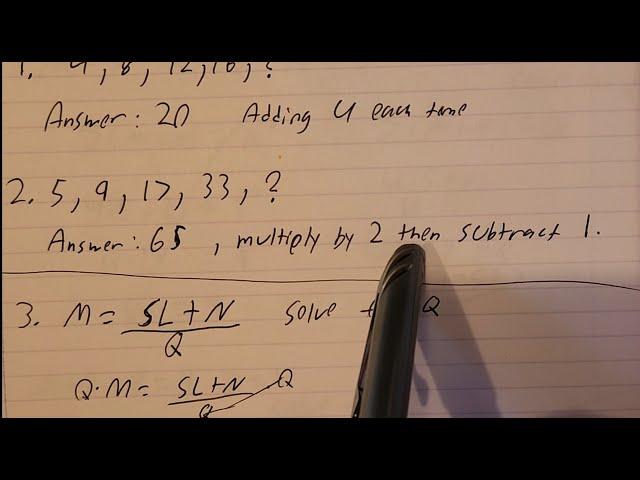 1. 4, 8, 12, 16, ?
Answer: 20 Adding 4 each time
2. 5, 9, 17, 33, ?
Answer: 65, multiply by 2 then subtract 1.
3. M = SL + N / Q solve Q
Q · M = SL + N / Q Q